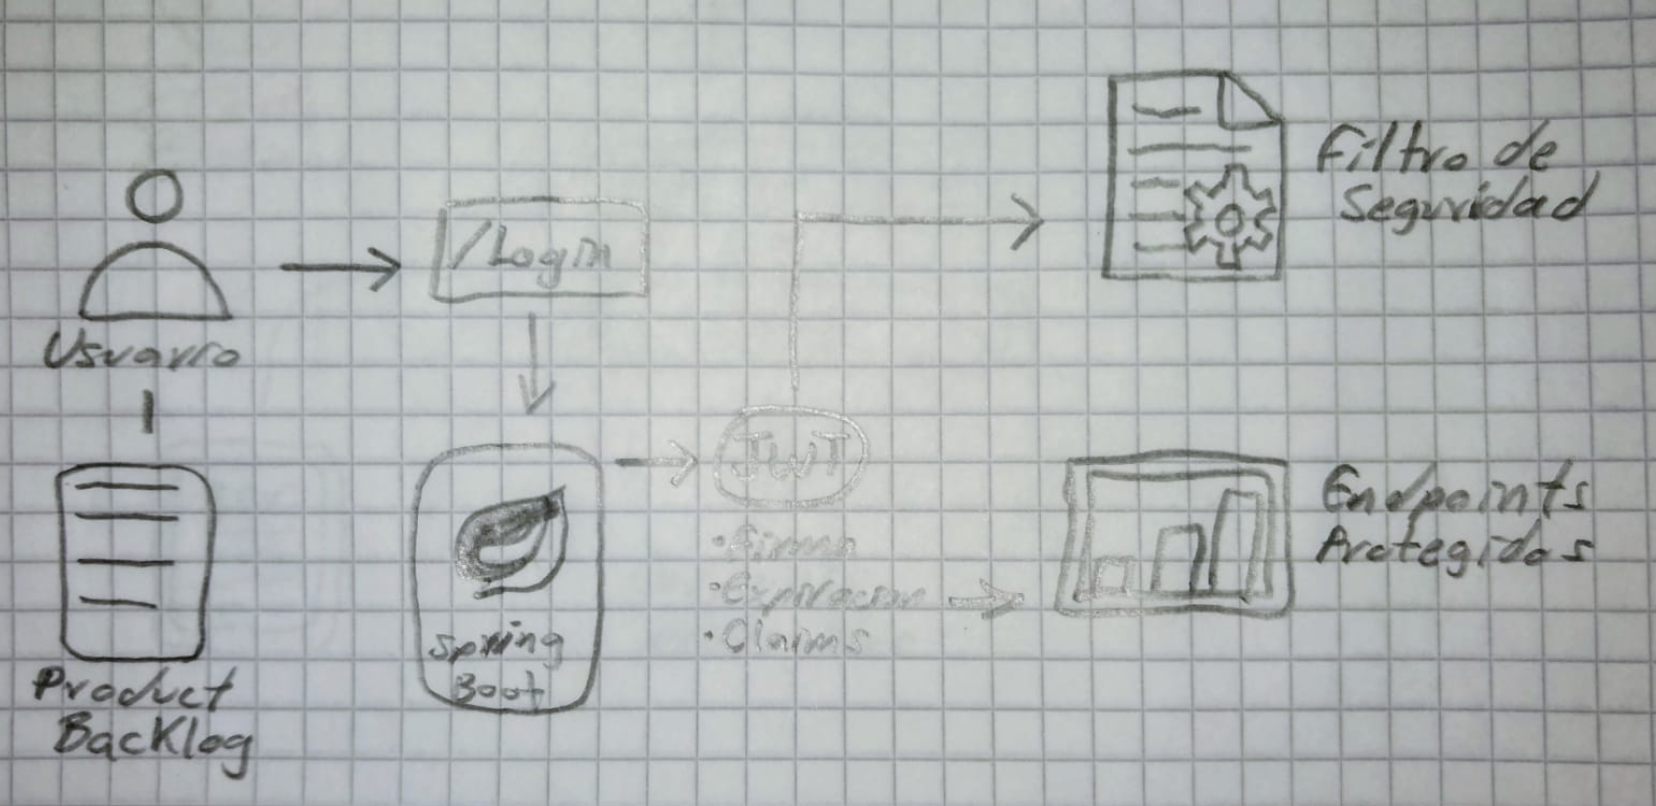 Usuario
Product
Backlog
/Login
Spring
Boot
JWT
• Firma
• Expiracion
• Claims
Filtro de
Seguridad
Endpoints
Protegidos